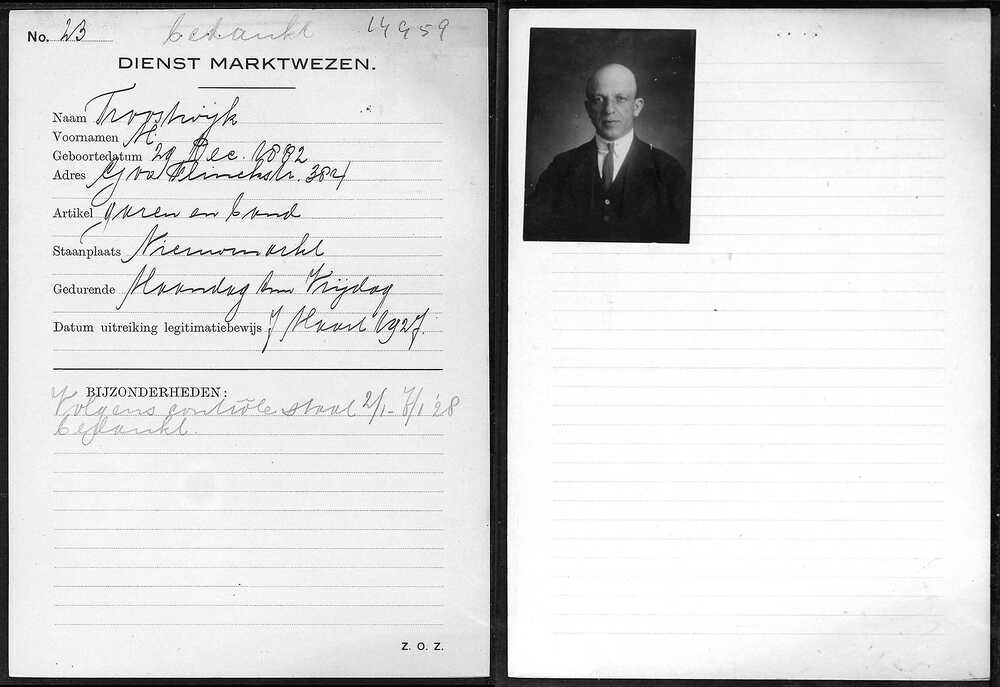 No. 23 bedankt 14959
DIENST MARKTWEZEN.
Naam Troostwijk
Voornamen M.
Geboortedatum 29 Dec. 1882
Adres Gov. Flinckstr. 384
Artikel garen en band
Staanplaats Nieuwmarkt
Gedurende Maandag t/m Vrijdag
Datum uitreiking legitimatiebewijs 7 Maart 1927.
BIJZONDERHEDEN:
Volgens contrôle staat 2/1 - 7/1 '28
bedankt.
Z. O. Z.